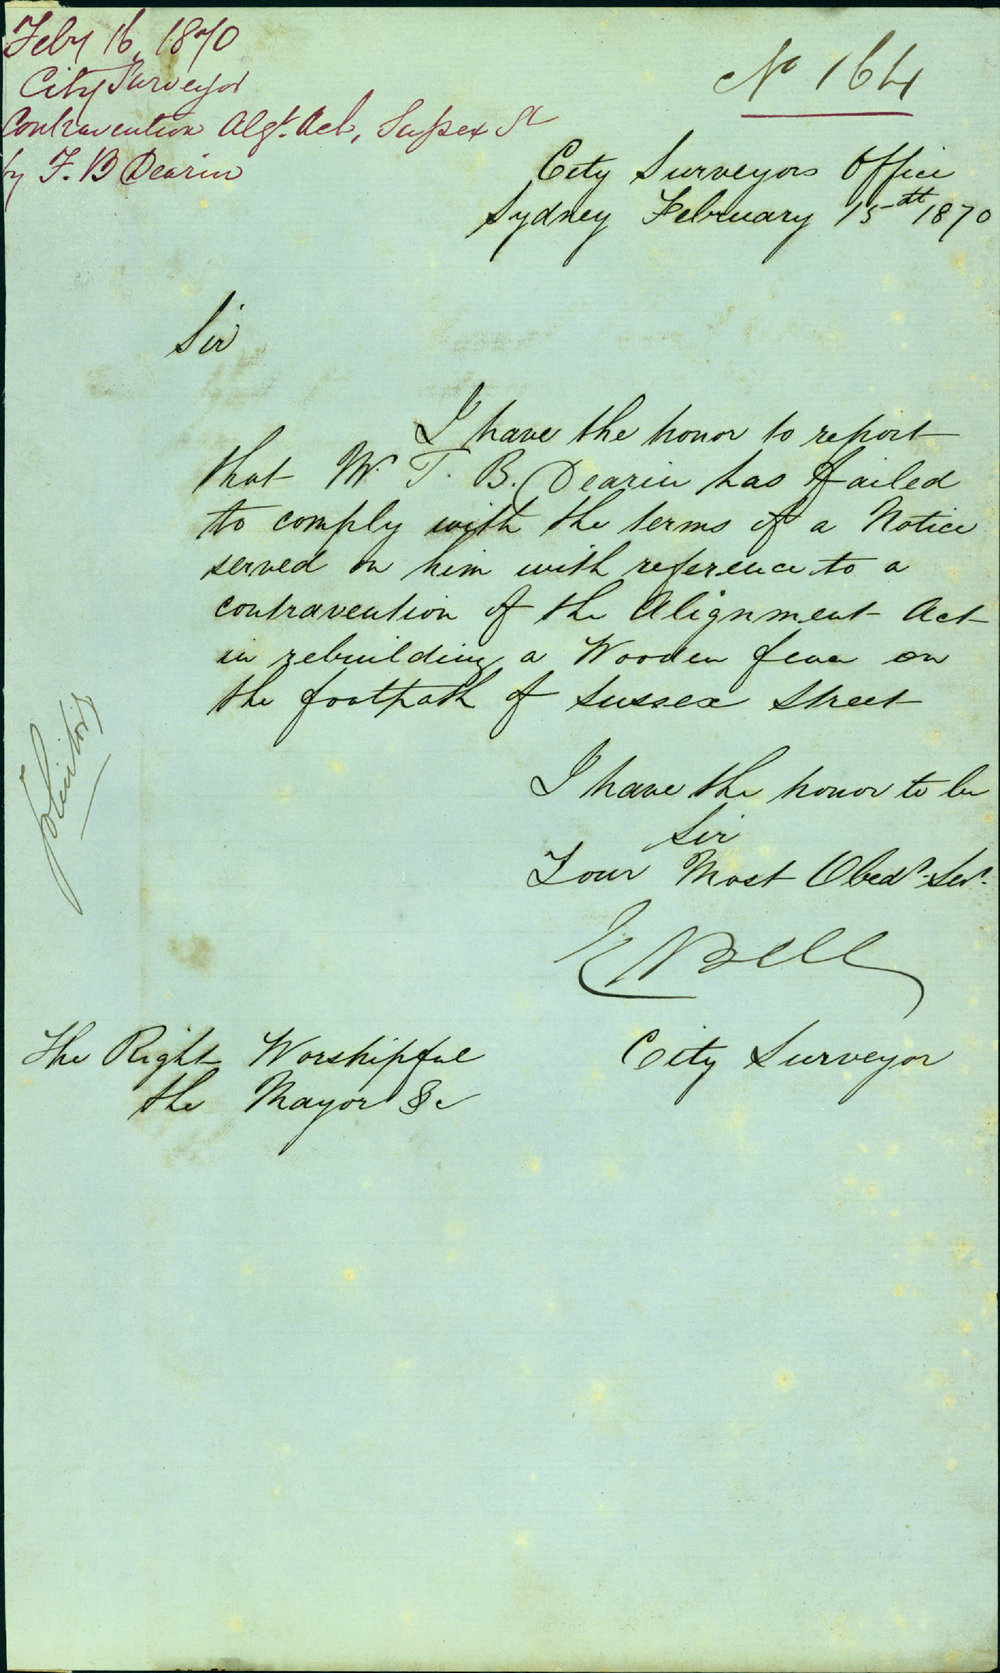 Feby 16, 1870
City Surveyor
Contravention Algt. Act, Sussex St
by F. B Dearin
No 164
City Surveyors Office
Sydney February 15th 1870
Sir
I have the honor to report
that Mr. T. B. Dearin has failed
to comply with the terms of a Notice
served on him with reference to a
contravention of the Alignment Act
in rebuilding a Wooden fence on
the footpath of Sussex Street
I have the honor to be
Sir
Your Most Obedt. Sert.
E Bell
City Surveyor
The Right Worshipful
the Mayor &c
Solicitor